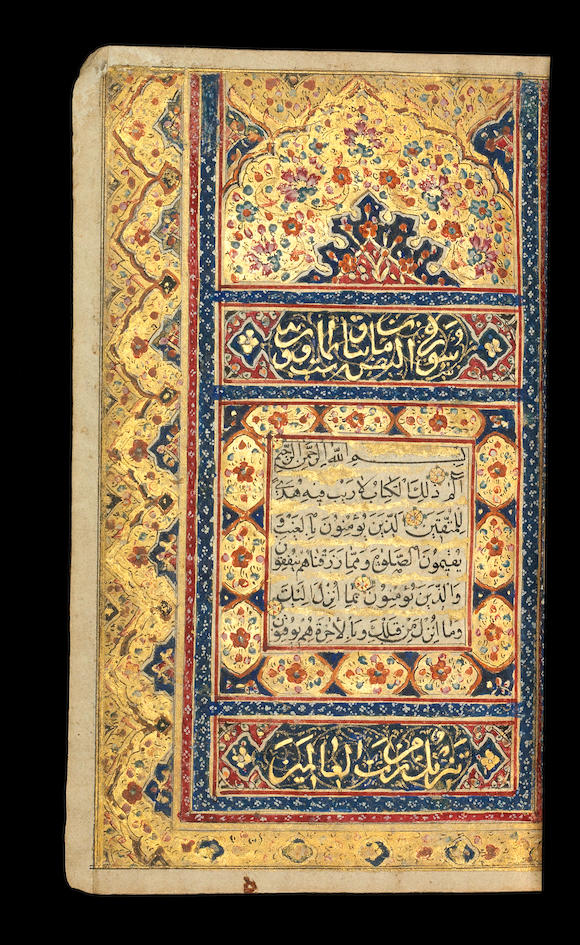 سورة البقرة
بسم الله الرحمن الرحيم
الم ذلك الكتاب لا ريب فيه هدى
للمتقين الذين يؤمنون بالغيب و
يقيمون الصلوة ومما رزقناهم ينفقون
والذين يؤمنون بما انزل اليك
وما انزل من قبلك وبالاخرة هم يوقنون
تنزيل من رب العالمين